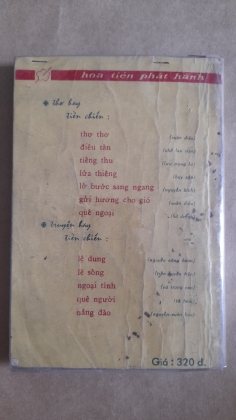 hoa tiên phát hành
thơ hay
tiền chiến :
thơ thơ (xuân diệu)
điêu tàn (chế lan viên)
tiếng thu (lưu trọng lư)
lửa thiêng (huy cận)
lỡ bước sang ngang (nguyễn bính)
gửi hương cho gió (xuân diệu)
quê ngoại
truyện hay
tiền chiến :
lệ dung
lê sông
ngoại tình
quê người (tô hoài)
nắng đào (nguyễn xuân huy)
Giá : 320 đ.